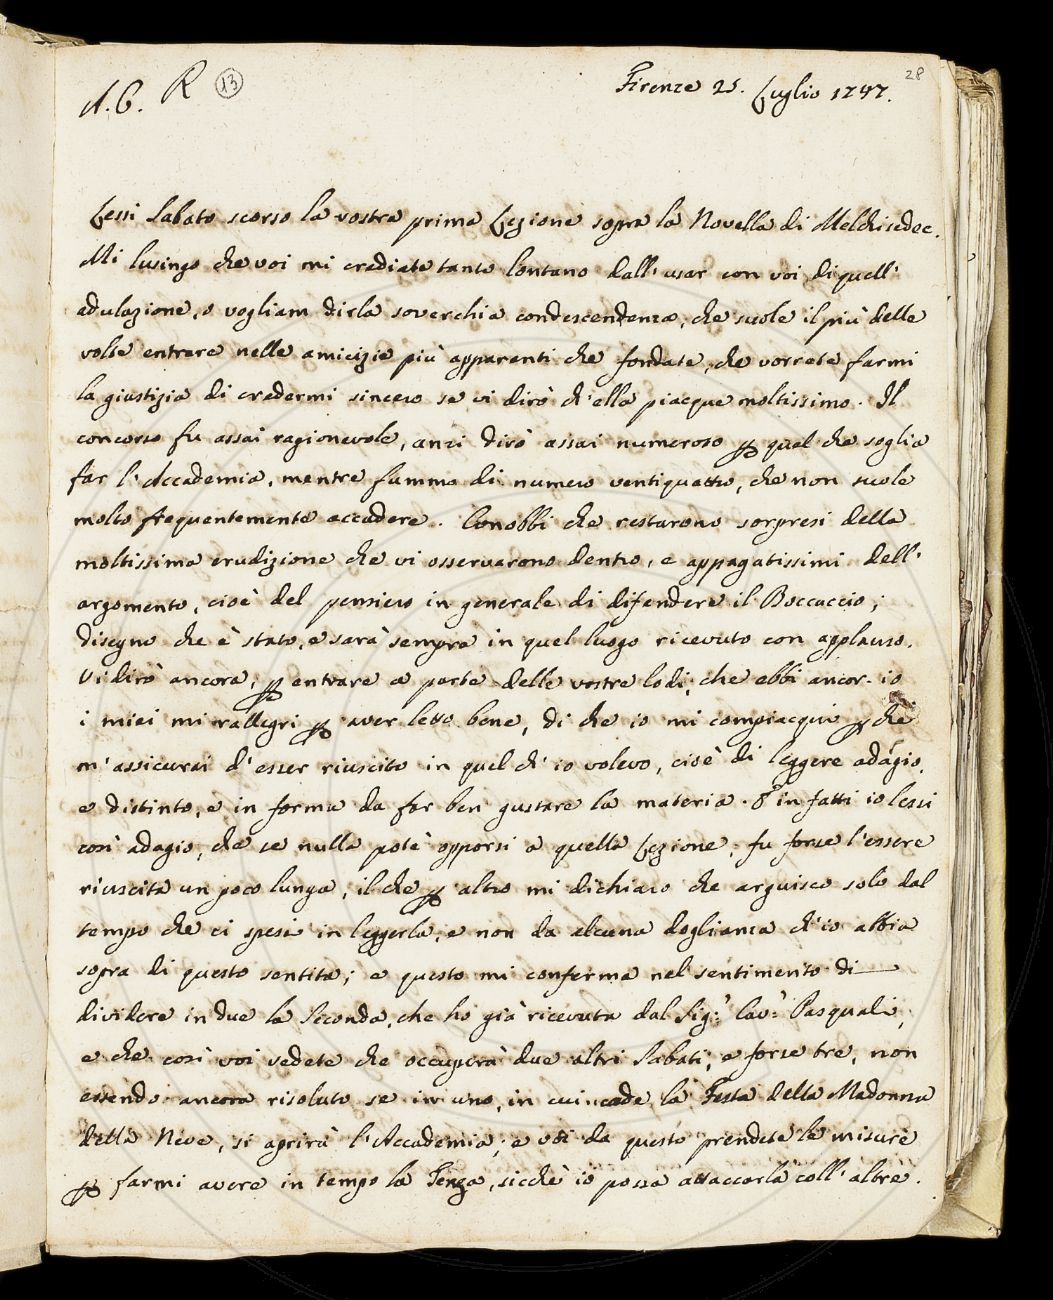 28
A. C. R 13 Firenze 25. Luglio 1747.
Lessi Sabato scorso la vostra prima Lezione sopra la Novella di Melchisedec.
Mi lusingo che voi mi crediate tanto lontano dall'usar con voi di quell'
adulazione, o vogliam dirla soverchia condescendenza, che suole il più delle
volte entrare nelle amicizie più apparenti che fondate, che vorrete farmi
la giustizia di credermi sincero se vi dirò ch'ella piacque moltissimo. Il
concorso fu assai ragionevole, anzi dirò assai numeroso ꝑ quel che soglia
far l'Accademia, mentre fummo di numero ventiquattro, che non suole
molto frequentemente accadere. Conobbi che restarono sorpresi della
moltissima erudizione che vi osservarono dentro, e appagatissimi dell'
argomento, cioè del pensiero in generale di difendere il Boccaccio;
disegno che è stato, e sarà sempre in quel luogo ricevuto con applauso.
Vi dirò ancora, ꝑ entrare a parte delle vostre lodi, che ebbi ancor io
i miei mi rallegri ꝑ aver letto bene, di che io mi compiacqui ꝑche
m'assicurai d'esser riuscito in quel ch'io volevo, cioè di leggere adagio,
e distinto, e in forma da far ben gustare la materia. E in fatti io lessi
così adagio, che se nulla potè opporsi a quella Lezione, fu forse l'essere
riuscita un poco lunga, il che ꝑ altro mi dichiaro che arguisco solo dal
tempo che ci spesi in leggerla, e non da alcuna doglianza ch'io abbia
sopra di questo sentita; e questo mi conferma nel sentimento di
dividere in due la Seconda, che ho già ricevuta dal Sig: Cav: Pasquali,
e che così voi vedete che occuperà due altri Sabati, e forse tre, non
essendo ancora risoluto se in uno, in cui cade la Festa della Madonna
della Neve, si aprirà l'Accademia; e voi da questo prendete le misure
ꝑ farmi avere in tempo la Terza, sicchè io possa attaccarla coll'altre.